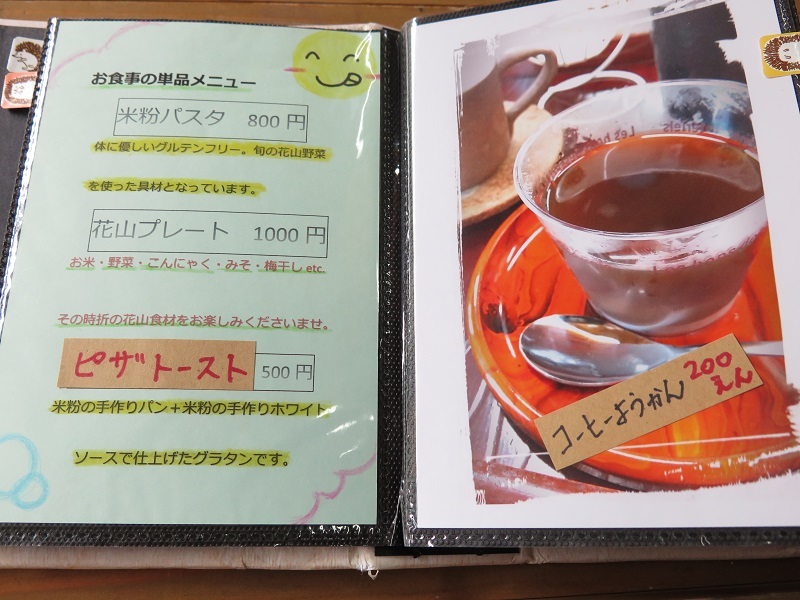 お食事の単品メニュー
米粉パスタ 800 円
体に優しいグルテンフリー。旬の花山野菜
を使った具材となっています。
花山プレート 1000 円
お米・野菜・こんにゃく・みそ・梅干し etc
その時折の花山食材をお楽しみくださいませ。
ピザトースト 500 円
米粉の手作りパン＋米粉の手作りホワイト
ソースで仕上げたグラタンです。
コーヒーようかん 200
えん